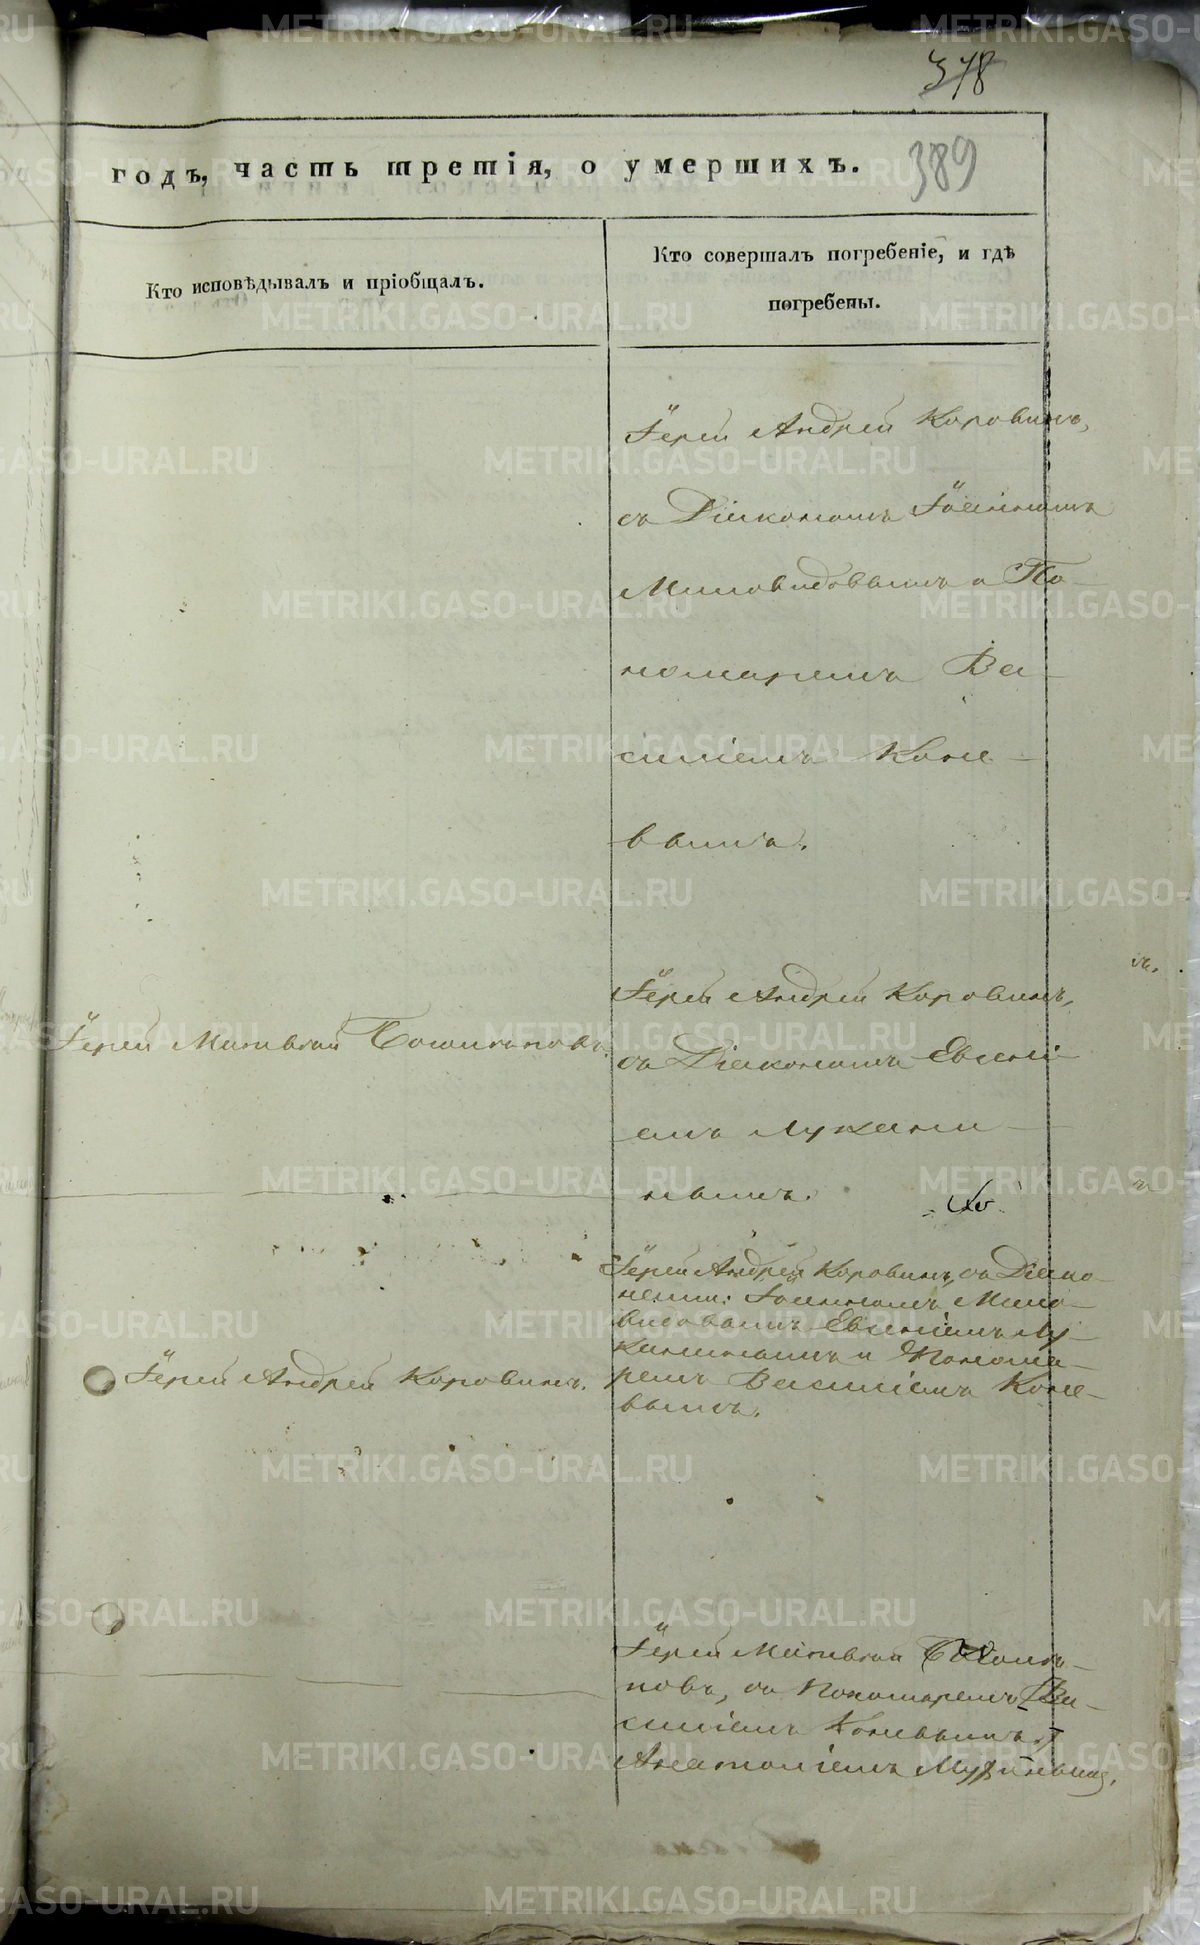 378
годъ, часть третія, о умершихъ. 389
Кто исповѣдывалъ и пріобщалъ.
Кто совершалъ погребеніе, и гдѣ
погребены.
Іерей Андрей Коровинъ,
съ Діакономъ Іоанномъ
Миловидовымъ и По-
номаремъ Ва-
силіемъ Коне-
вымъ.
Іерей Андрей Коровинъ,
съ Діакономъ Евгені-
емъ Лукани-
нымъ.
Іерей Матвѣй
Іерей Андрей Коровинъ, съ Діако-
нами: Іоанномъ Мило-
видовымъ Евгеніемъ Лу-
канинымъ и Понома-
ремъ Василіемъ Коне-
вымъ.
Іерей Андрей Коровинъ.
Іерей Матвѣй
новъ, съ Пономаремъ Ва-
силіемъ Коневымъ и
Анатоліемъ
METRIKI.GASO-URAL.RU